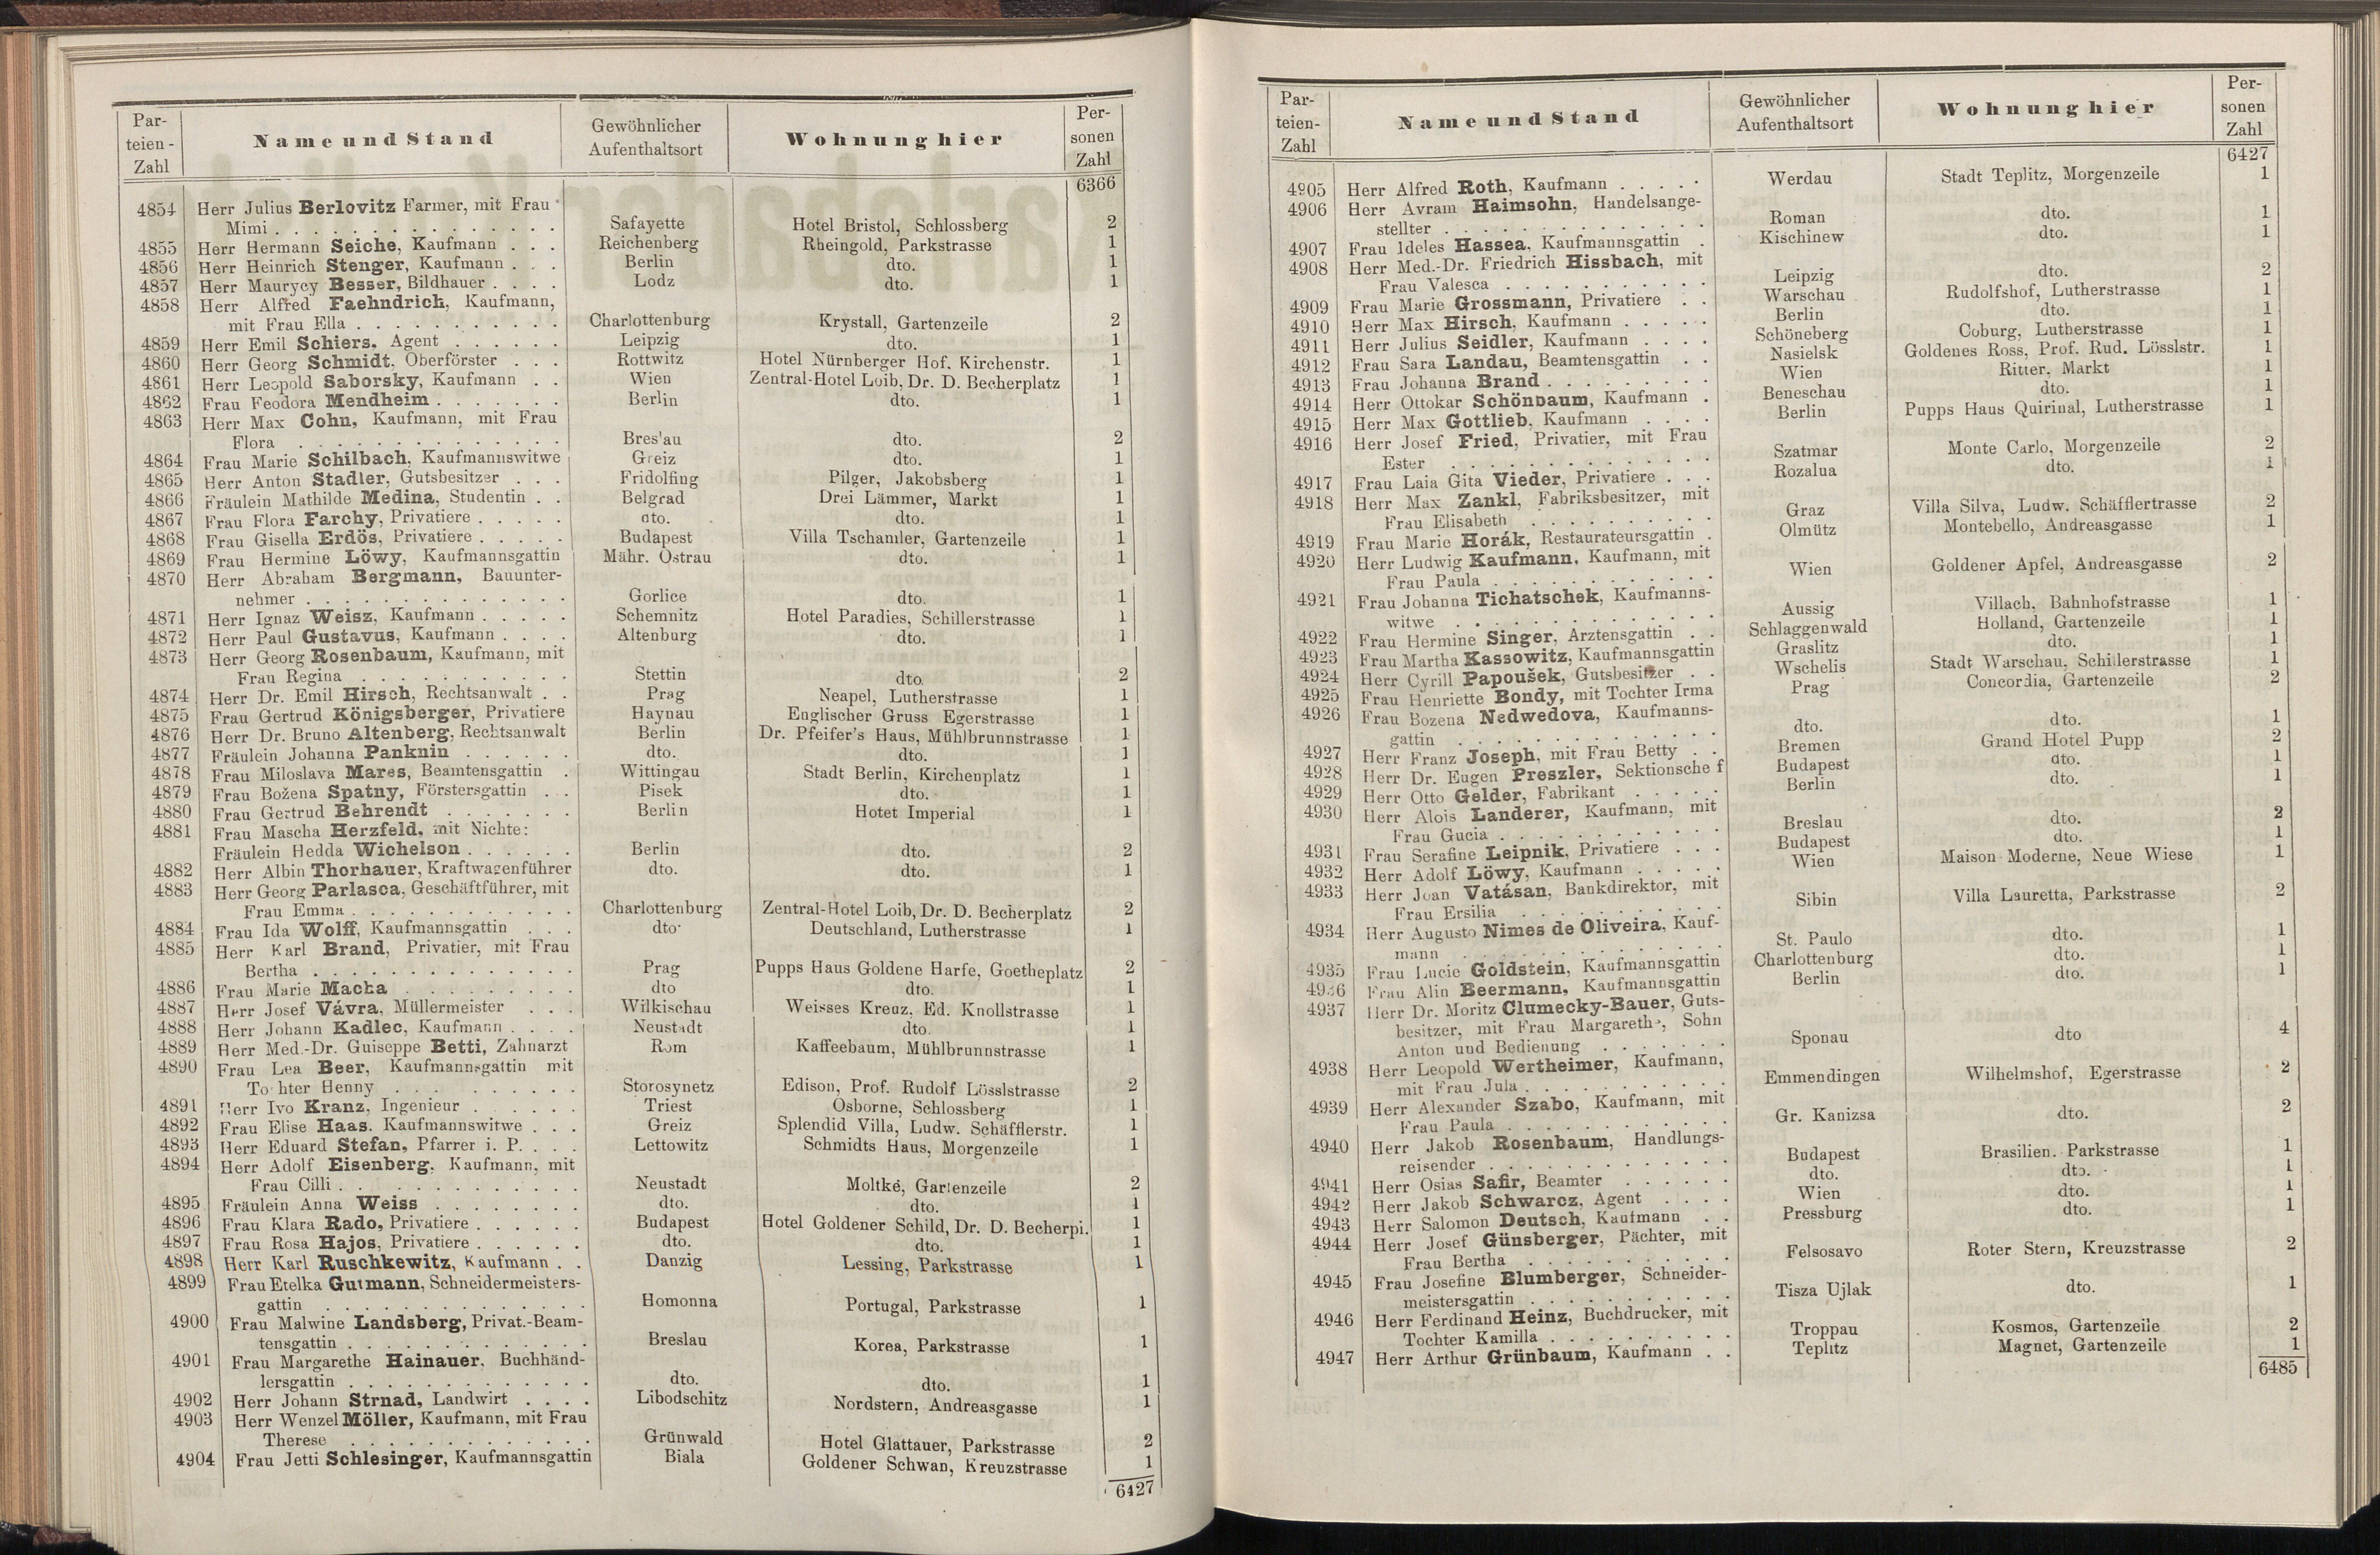 Par-
teien-
Zahl
Name und Stand
Gewöhnlicher
Aufenthaltsort
Wohnung hier
Per-
sonen
Zahl
6366
4854 Herr Julius Berlovitz Farmer, mit Frau
Mimi . . . Safayette Hotel Bristol, Schlossberg 2
4855 Herr Hermann Seiche, Kaufmann . . . Reichenberg Rheingold, Parkstrasse 1
4856 Herr Heinrich Stenger, Kaufmann . . . Berlin dto. 1
4857 Herr Maurycy Besser, Bildhauer . . . . Lodz dto. 1
4858 Herr Alfred Faehndrich, Kaufmann,
mit Frau Ella . . . Charlottenburg Krystall, Gartenzeile 2
4859 Herr Emil Schiers, Agent . . . Leipzig dto. 1
4860 Herr Georg Schmidt, Oberförster . . . Rottwitz Hotel Nürnberger Hof, Kirchenstr. 1
4861 Herr Leopold Saborsky, Kaufmann . . Wien Zentral-Hotel Loib, Dr. D. Becherplatz 1
4862 Frau Feodora Mendheim . . . Berlin dto. 1
4863 Herr Max Cohn, Kaufmann, mit Frau
Flora . . . Bres'au dto. 2
4864 Frau Marie Schilbach, Kaufmannswitwe Greiz dto. 1
4865 Herr Anton Stadler, Gutsbesitzer . . . Fridolfing Pilger, Jakobsberg 1
4866 Fräulein Mathilde Medina, Studentin . . Belgrad Drei Lämmer, Markt 1
4867 Frau Flora Farchy, Privatiere . . . dto. dto. 1
4868 Frau Gisella Erdös, Privatiere . . . Budapest Villa Tschamler, Gartenzeile 1
4869 Frau Hermine Löwy, Kaufmannsgattin Mähr. Ostrau dto. 1
4870 Herr Abraham Bergmann, Bauunter-
nehmer . . . Gorlice dto. 1
4871 Herr Ignaz Weisz, Kaufmann . . . Schemnitz Hotel Paradies, Schillerstrasse 1
4872 Herr Paul Gustavus, Kaufmann . . . . Altenburg dto. 1
4873 Herr Georg Rosenbaum, Kaufmann, mit
Frau Regina . . . Stettin dto. 2
4874 Herr Dr. Emil Hirsch, Rechtsanwalt . . Prag Neapel, Lutherstrasse 1
4875 Frau Gertrud Königsberger, Privatiere Haynau Englischer Gruss Egerstrasse 1
4876 Herr Dr. Bruno Altenberg, Rechtsanwalt Berlin Dr. Pfeifer's Haus, Mühlbrunnstrasse 1
4877 Fräulein Johanna Panknin . . . dto. dto. 1
4878 Frau Miloslava Mares, Beamtensgattin . Wittingau Stadt Berlin, Kirchenplatz 1
4879 Frau Božena Spatny, Förstersgattin . . Pisek dto. 1
4880 Frau Gertrud Behrendt . . . Berlin Hotel Imperial 1
4881 Frau Mascha Herzfeld, mit Nichte:
Fräulein Hedda Wichelson . . . Berlin dto. 2
4882 Herr Albin Thorhauer, Kraftwagenführer dto. dto. 1
4883 Herr Georg Parlasca, Geschäftführer, mit
Frau Emma . . . Charlottenburg Zentral-Hotel Loib, Dr. D. Becherplatz 2
4884 Frau Ida Wolff, Kaufmannsgattin . . . dto. Deutschland, Lutherstrasse 1
4885 Herr Karl Brand, Privatier, mit Frau
Bertha . . . Prag Pupps Haus Goldene Harfe, Goetheplatz 2
4886 Frau Marie Macha . . . dto dto. 1
4887 Herr Josef Vávra, Müllermeister . . . Wilkischau Weisses Kreuz, Ed. Knollstrasse 1
4888 Herr Johann Kadlec, Kaufmann . . . . Neustadt dto. 1
4889 Herr Med.-Dr. Guiseppe Betti, Zahnarzt Rom Kaffeebaum, Mühlbrunnstrasse 1
4890 Frau Lea Beer, Kaufmannsgattin mit
To hter Henny . . . Storosynetz Edison, Prof. Rudolf Lösslstrasse 2
4891 Herr Ivo Kranz, Ingenieur . . . Triest Osborne, Schlossberg 1
4892 Frau Elise Haas, Kaufmannswitwe . . . Greiz Splendid Villa, Ludw. Schäfflerstr. 1
4893 Herr Eduard Stefan, Pfarrer i. P. . . . Lettowitz Schmidts Haus, Morgenzeile 1
4894 Herr Adolf Eisenberg, Kaufmann, mit
Frau Cilli . . . Neustadt Moltké, Gartenzeile 2
4895 Fräulein Anna Weiss . . . dto. dto. 1
4896 Frau Klara Rado, Privatiere . . . Budapest Hotel Goldener Schild, Dr. D. Becherpl. 1
4897 Frau Rosa Hajos, Privatiere . . . dto. dto. 1
4898 Herr Karl Ruschkewitz, Kaufmann . . Danzig Lessing, Parkstrasse 1
4899 Frau Etelka Gutmann, Schneidermeisters-
gattin . . . Homonna Portugal, Parkstrasse 1
4900 Frau Malwine Landsberg, Privat.-Beam-
tensgattin . . . Breslau Korea, Parkstrasse 1
4901 Frau Margarethe Hainauer, Buchhänd-
lersgattin . . . dto. dto. 1
4902 Herr Johann Strnad, Landwirt . . . . Libodschitz Nordstern, Andreasgasse 1
4903 Herr Wenzel Möller, Kaufmann, mit Frau
Therese . . . Grünwald Hotel Glattauer, Parkstrasse 2
4904 Frau Jetti Schlesinger, Kaufmannsgattin Biala Goldener Schwan, Kreuzstrasse 1
6427
Par-
teien-
Zahl
Name und Stand
Gewöhnlicher
Aufenthaltsort
Wohnung hier
Per-
sonen
Zahl
6427
4905 Herr Alfred Roth, Kaufmann . . . Werdau Stadt Teplitz, Morgenzeile 1
4906 Herr Avram Haimsohn, Handelsange-
stellter . . . Roman dto. 1
4907 Frau Ideles Hassea, Kaufmannsgattin . Kischinew dto. 1
4908 Herr Med.-Dr. Friedrich Hissbach, mit
Frau Valesca . . . Leipzig dto. 2
4909 Frau Marie Grossmann, Privatiere . . Warschau Rudolfshof, Lutherstrasse 1
4910 Herr Max Hirsch, Kaufmann . . . Berlin dto. 1
4911 Herr Julius Seidler, Kaufmann . . . . Schöneberg Coburg, Lutherstrasse 1
4912 Frau Sara Landau, Beamtensgattin . . Nasielsk Goldenes Ross, Prof. Rud. Lösslstr. 1
4913 Frau Johanna Brand . . . Wien Ritter, Markt 1
4914 Herr Ottokar Schönbaum, Kaufmann . Beneschau dto. 1
4915 Herr Max Gottlieb, Kaufmann . . . . Berlin Pupps Haus Quirinal, Lutherstrasse 1
4916 Herr Josef Fried, Privatier, mit Frau
Ester . . . Szatmar Monte Carlo, Morgenzeile 2
4917 Frau Laia Gita Vieder, Privatiere . . . Rozalua dto. 1
4918 Herr Max Zankl, Fabriksbesitzer, mit
Frau Elisabeth . . . Graz Villa Silva, Ludw. Schäfflertrasse 2
4919 Frau Marie Horák, Restaurateursgattin . Olmütz Montebello, Andreasgasse 1
4920 Herr Ludwig Kaufmann, Kaufmann, mit
Frau Paula . . . Wien Goldener Apfel, Andreasgasse 2
4921 Frau Johanna Tichatschek, Kaufmanns-
witwe . . . Aussig Villach, Bahnhofstrasse 1
4922 Frau Hermine Singer, Arztensgattin . . Schlaggenwald Holland, Gartenzeile 1
4923 Frau Martha Kassowitz, Kaufmannsgattin Graslitz dto. 1
4924 Herr Cyrill Papoušek, Gutsbesitzer . . Wschelis Stadt Warschau, Schillerstrasse 1
4925 Frau Henriette Bondy, mit Tochter Irma Prag Concordia, Gartenzeile 2
4926 Frau Bozena Nedwedova, Kaufmanns-
gattin . . . dto. dto. 1
4927 Herr Franz Joseph, mit Frau Betty . . Bremen Grand Hotel Pupp 2
4928 Herr Dr. Eugen Preszler, Sektionsche f Budapest dto. 1
4929 Herr Otto Gelder, Fabrikant . . . Berlin dto. 1
4930 Herr Alois Landerer, Kaufmann, mit
Frau Gucia . . . Breslau dto. 2
4931 Frau Serafine Leipnik, Privatiere . . . Budapest dto. 1
4932 Herr Adolf Löwy, Kaufmann . . . Wien Maison Moderne, Neue Wiese 1
4933 Herr Joan Vatásan, Bankdirektor, mit
Frau Ersilia . . . Sibin Villa Lauretta, Parkstrasse 2
4934 Herr Augusto Nimes de Oliveira, Kauf-
mann . . . St. Paulo dto. 1
4935 Frau Lucie Goldstein, Kaufmannsgattin Charlottenburg dto. 1
4936 Frau Alin Beermann, Kaufmannsgattin Berlin dto. 1
4937 Herr Dr. Moritz Clumecky-Bauer, Guts-
besitzer, mit Frau Margareth, Sohn
Anton und Bedienung . . . Sponau dto 4
4938 Herr Leopold Wertheimer, Kaufmann,
mit Frau Jula . . . Emmendingen Wilhelmshof, Egerstrasse 2
4939 Herr Alexander Szabo, Kaufmann, mit
Frau Paula . . . Gr. Kanizsa dto. 2
4940 Herr Jakob Rosenbaum, Handlungs-
reisender . . . Budapest Brasilien, Parkstrasse 1
4941 Herr Osias Safir, Beamter . . . dto. dto. 1
4942 Herr Jakob Schwarcz, Agent . . . . Wien dto. 1
4943 Herr Salomon Deutsch, Kaufmann . . Pressburg dto. 1
4944 Herr Josef Günsberger, Pächter, mit
Frau Bertha . . . Felsosavo Roter Stern, Kreuzstrasse 2
4945 Frau Josefine Blumberger, Schneider-
meistersgattin . . . Tisza Ujlak dto. 1
4946 Herr Ferdinand Heinz, Buchdrucker, mit
Tochter Kamilla . . . Troppau Kosmos, Gartenzeile 2
4947 Herr Arthur Grünbaum, Kaufmann . . Teplitz Magnet, Gartenzeile 1
6485